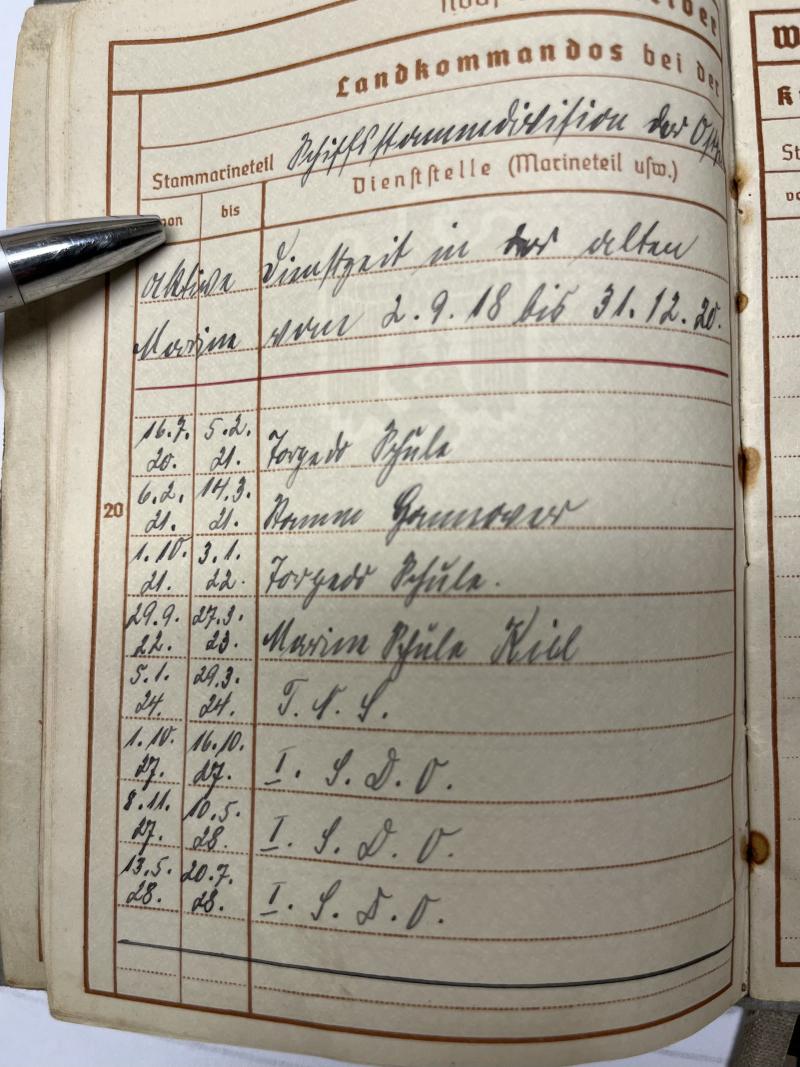 Landkommandos bei der
Stammarineteil Schiffsstammdivision der Osts
von bis Dienststelle (Marineteil usw.)
aktive Dienstzeit in der alten
Marine vom 2.9.18 bis 31.12.20.
16.7. 5.2.
20. 21. Torpedo Schule
6.2. 14.3.
20
21. 21. Stamm Hannover
1.10. 3.1.
21. 22. Torpedo Schule.
29.9. 27.3.
22. 23. Marine Schule Kiel
5.1. 29.3.
24. 24. T. N. S.
1.10. 16.10.
27. 27. I. S. D. O.
8.11. 10.5.
27. 28. I. S. D. O.
13.5. 20.7.
28. 28. I. S. D. O.
W
K
St
vo